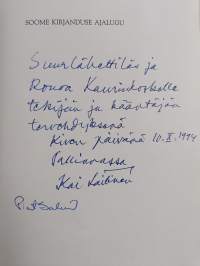 SOOME KIRJANDUSE AJALUGU
Suurlähettiläs ja
Rouva Kauriskoskelle
tekijän ja kääntäjän
tervehdyksenä
Kiven päivänä 10.X.1994
Tallinnassa
Kai Laitinen